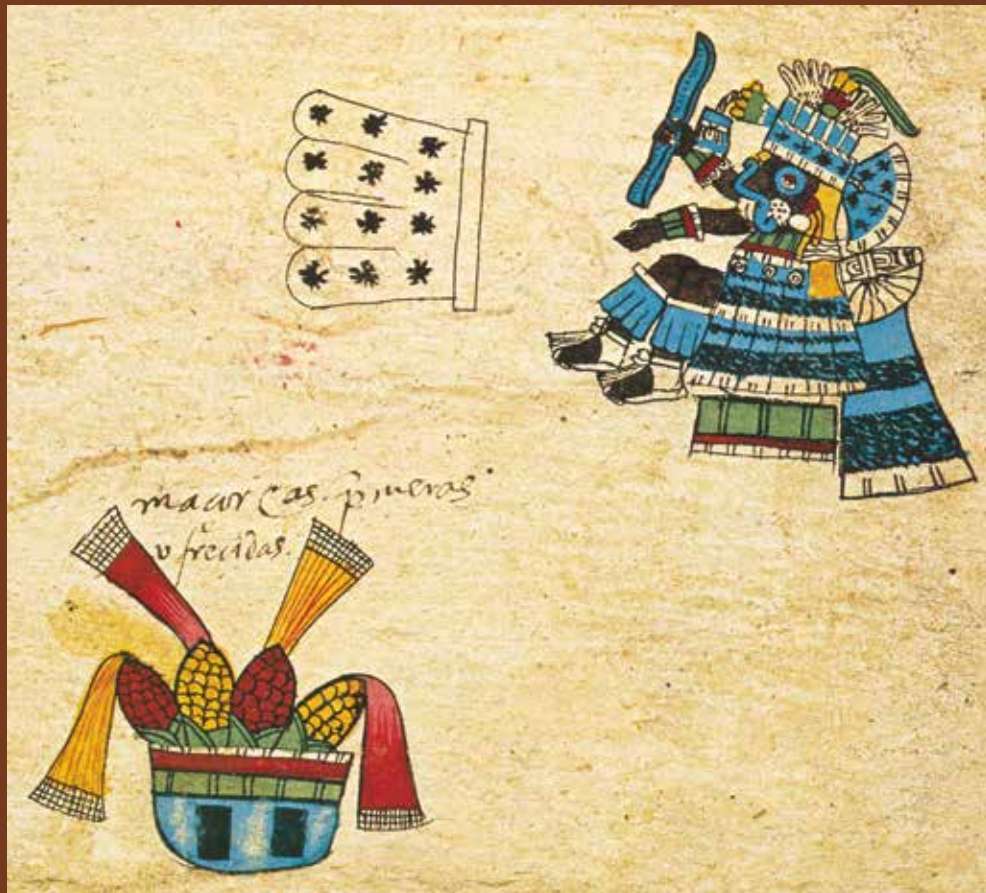 macorcas. p̃meras
ofrecidas.